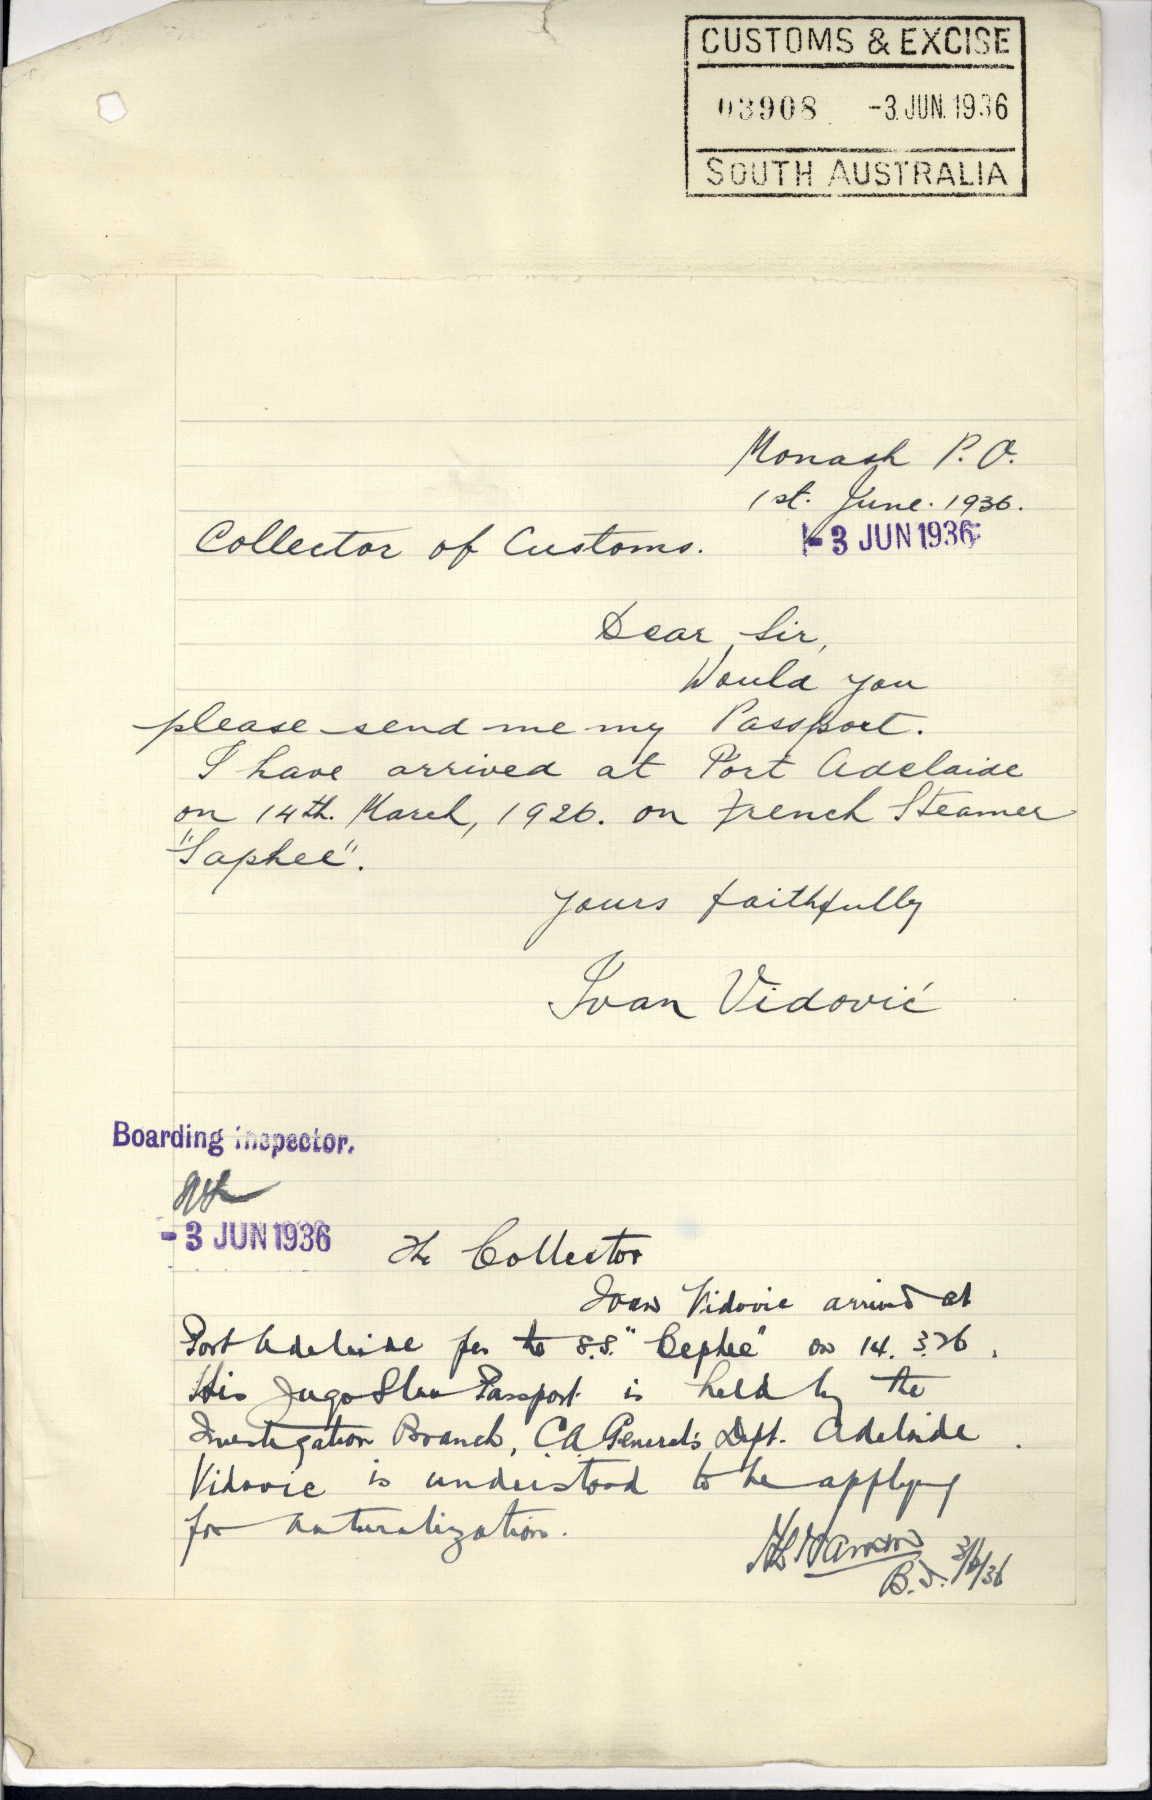 CUSTOMS & EXCISE
03908 -3. JUN. 1936
SOUTH AUSTRALIA
Monash P. O.
1st. June. 1936.
Collector of Customs.
- 3 JUN 1936
Dear Sir,
Would you
please send me my Passport.
I have arrived at Port Adelaide
on 14th. March, 1926. on French Steamer
"Saphee".
Yours faithfully
Ivan Vidović
Boarding Inspector.
- 3 JUN 1936
The Collector
Ivan Vidovic arrived at
Port Adelaide per the s.s. "Cephee" on 14. 3.26.
His Jugo Slav Passport is held by the
Investigation Branch, C.A. General's Dept. Adelaide.
Vidovic is understood to be applying
for naturalization.
B.I. 3/6/36